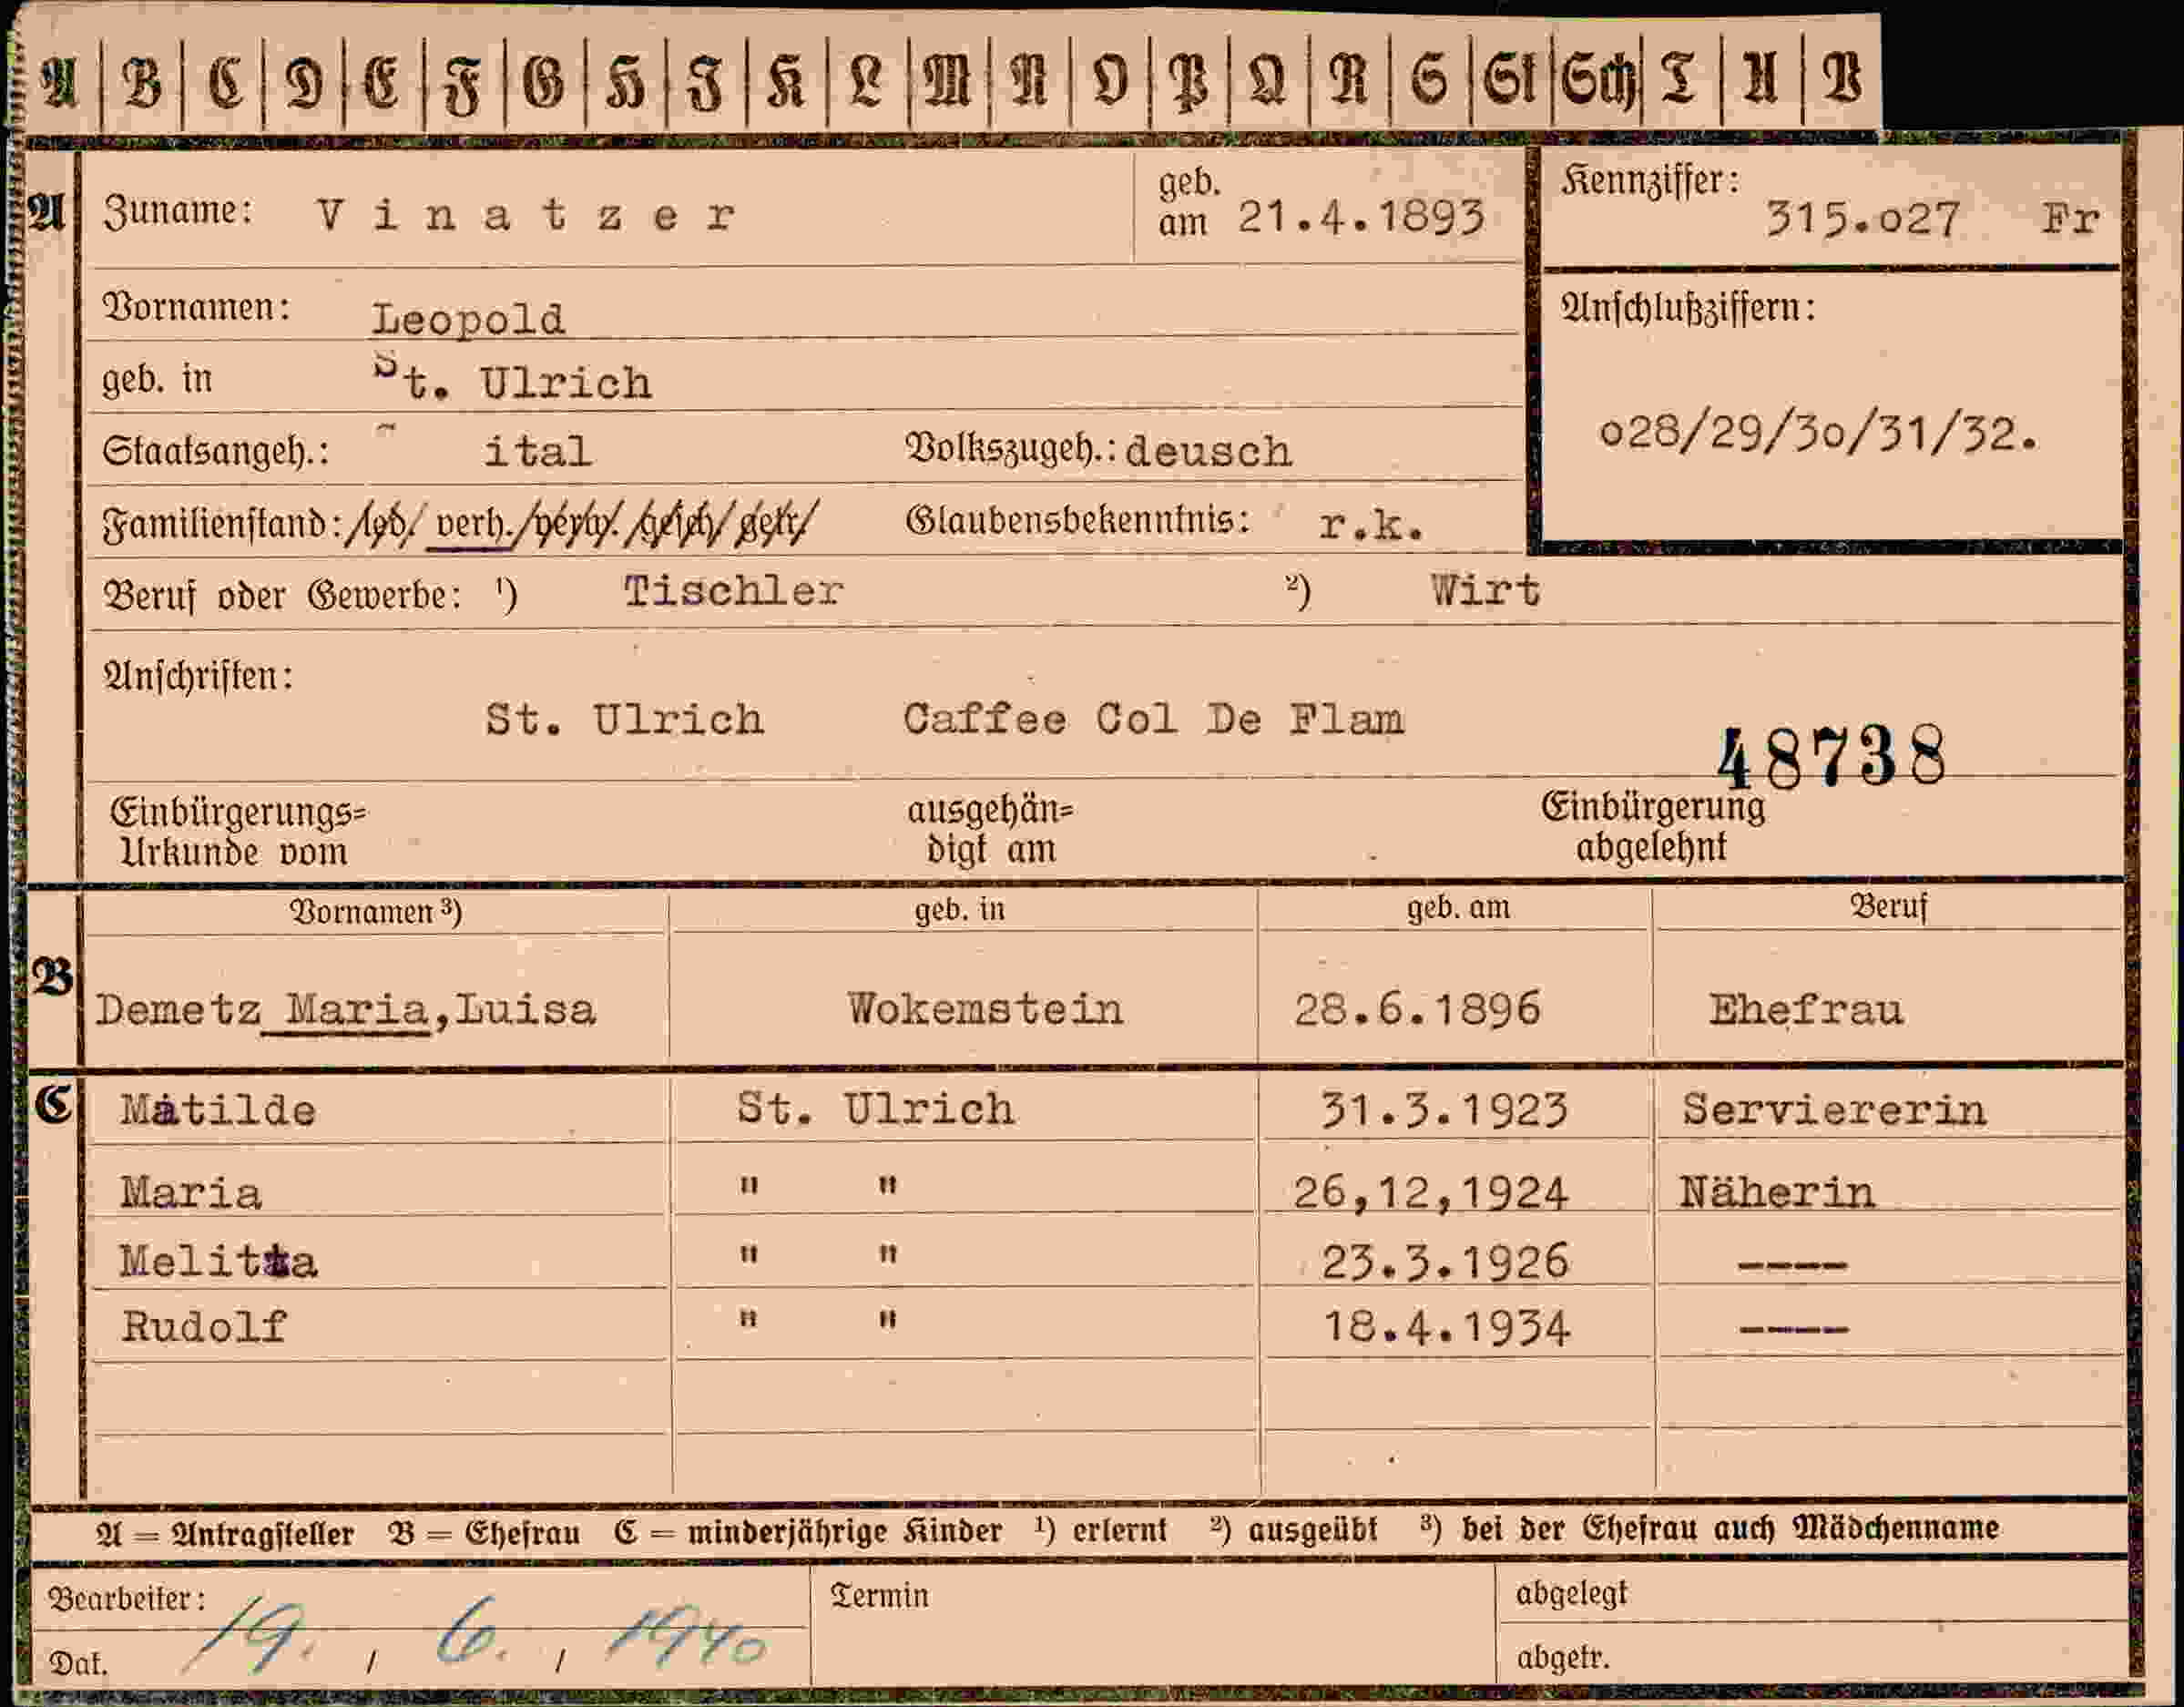 A B C D E F G H J K L M N O P Q R S St Sch T U V
A Zuname: Vinatzer geb. am 21.4.1893 Kennziffer: 315.o27 Fr
Vornamen: Leopold Anschlußziffern:
geb. in St. Ulrich
o28/29/3o/31/32.
Staatsangeh.: ital Volkszugeh.: deusch
Familienstand: /led/ verh./verw./gesch/ getr/ Glaubensbekenntnis: r.k.
Beruf oder Gewerbe: ¹) Tischler ²) Wirt
Anschriften:
St. Ulrich Caffee Col De Flam
48738
Einbürgerungs= ausgehän= Einbürgerung
Urkunde vom digt am abgelehnt
Vornamen ³) geb. in geb. am Beruf
B Demetz Maria,Luisa Wokemstein 28.6.1896 Ehefrau
C Matilde St. Ulrich 31.3.1923 Serviererin
Maria " " 26,12,1924 Näherin
Melitta " " 23.3.1926 ----
Rudolf " " 18.4.1934 ----
A = Antragsteller B = Ehefrau C = minderjährige Kinder ¹) erlernt ²) ausgeübt ³) bei der Ehefrau auch Mädchenname
Bearbeiter: Termin abgelegt
Dat. 19. / 6. / 1940 abgetr.